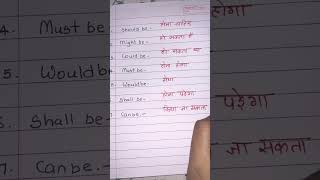 Should be - होना चाहिए
Might be - हो सकता है
Could be - हो सकता था
Must be - होना होगा
Would be - होगा
Shall be - होना पड़ेगा
Can be. - किया जा सकता
4. Must be -
होगा
5. Would be
6. Shall be -
पड़ेगा
7. Can be. -
जा सकता